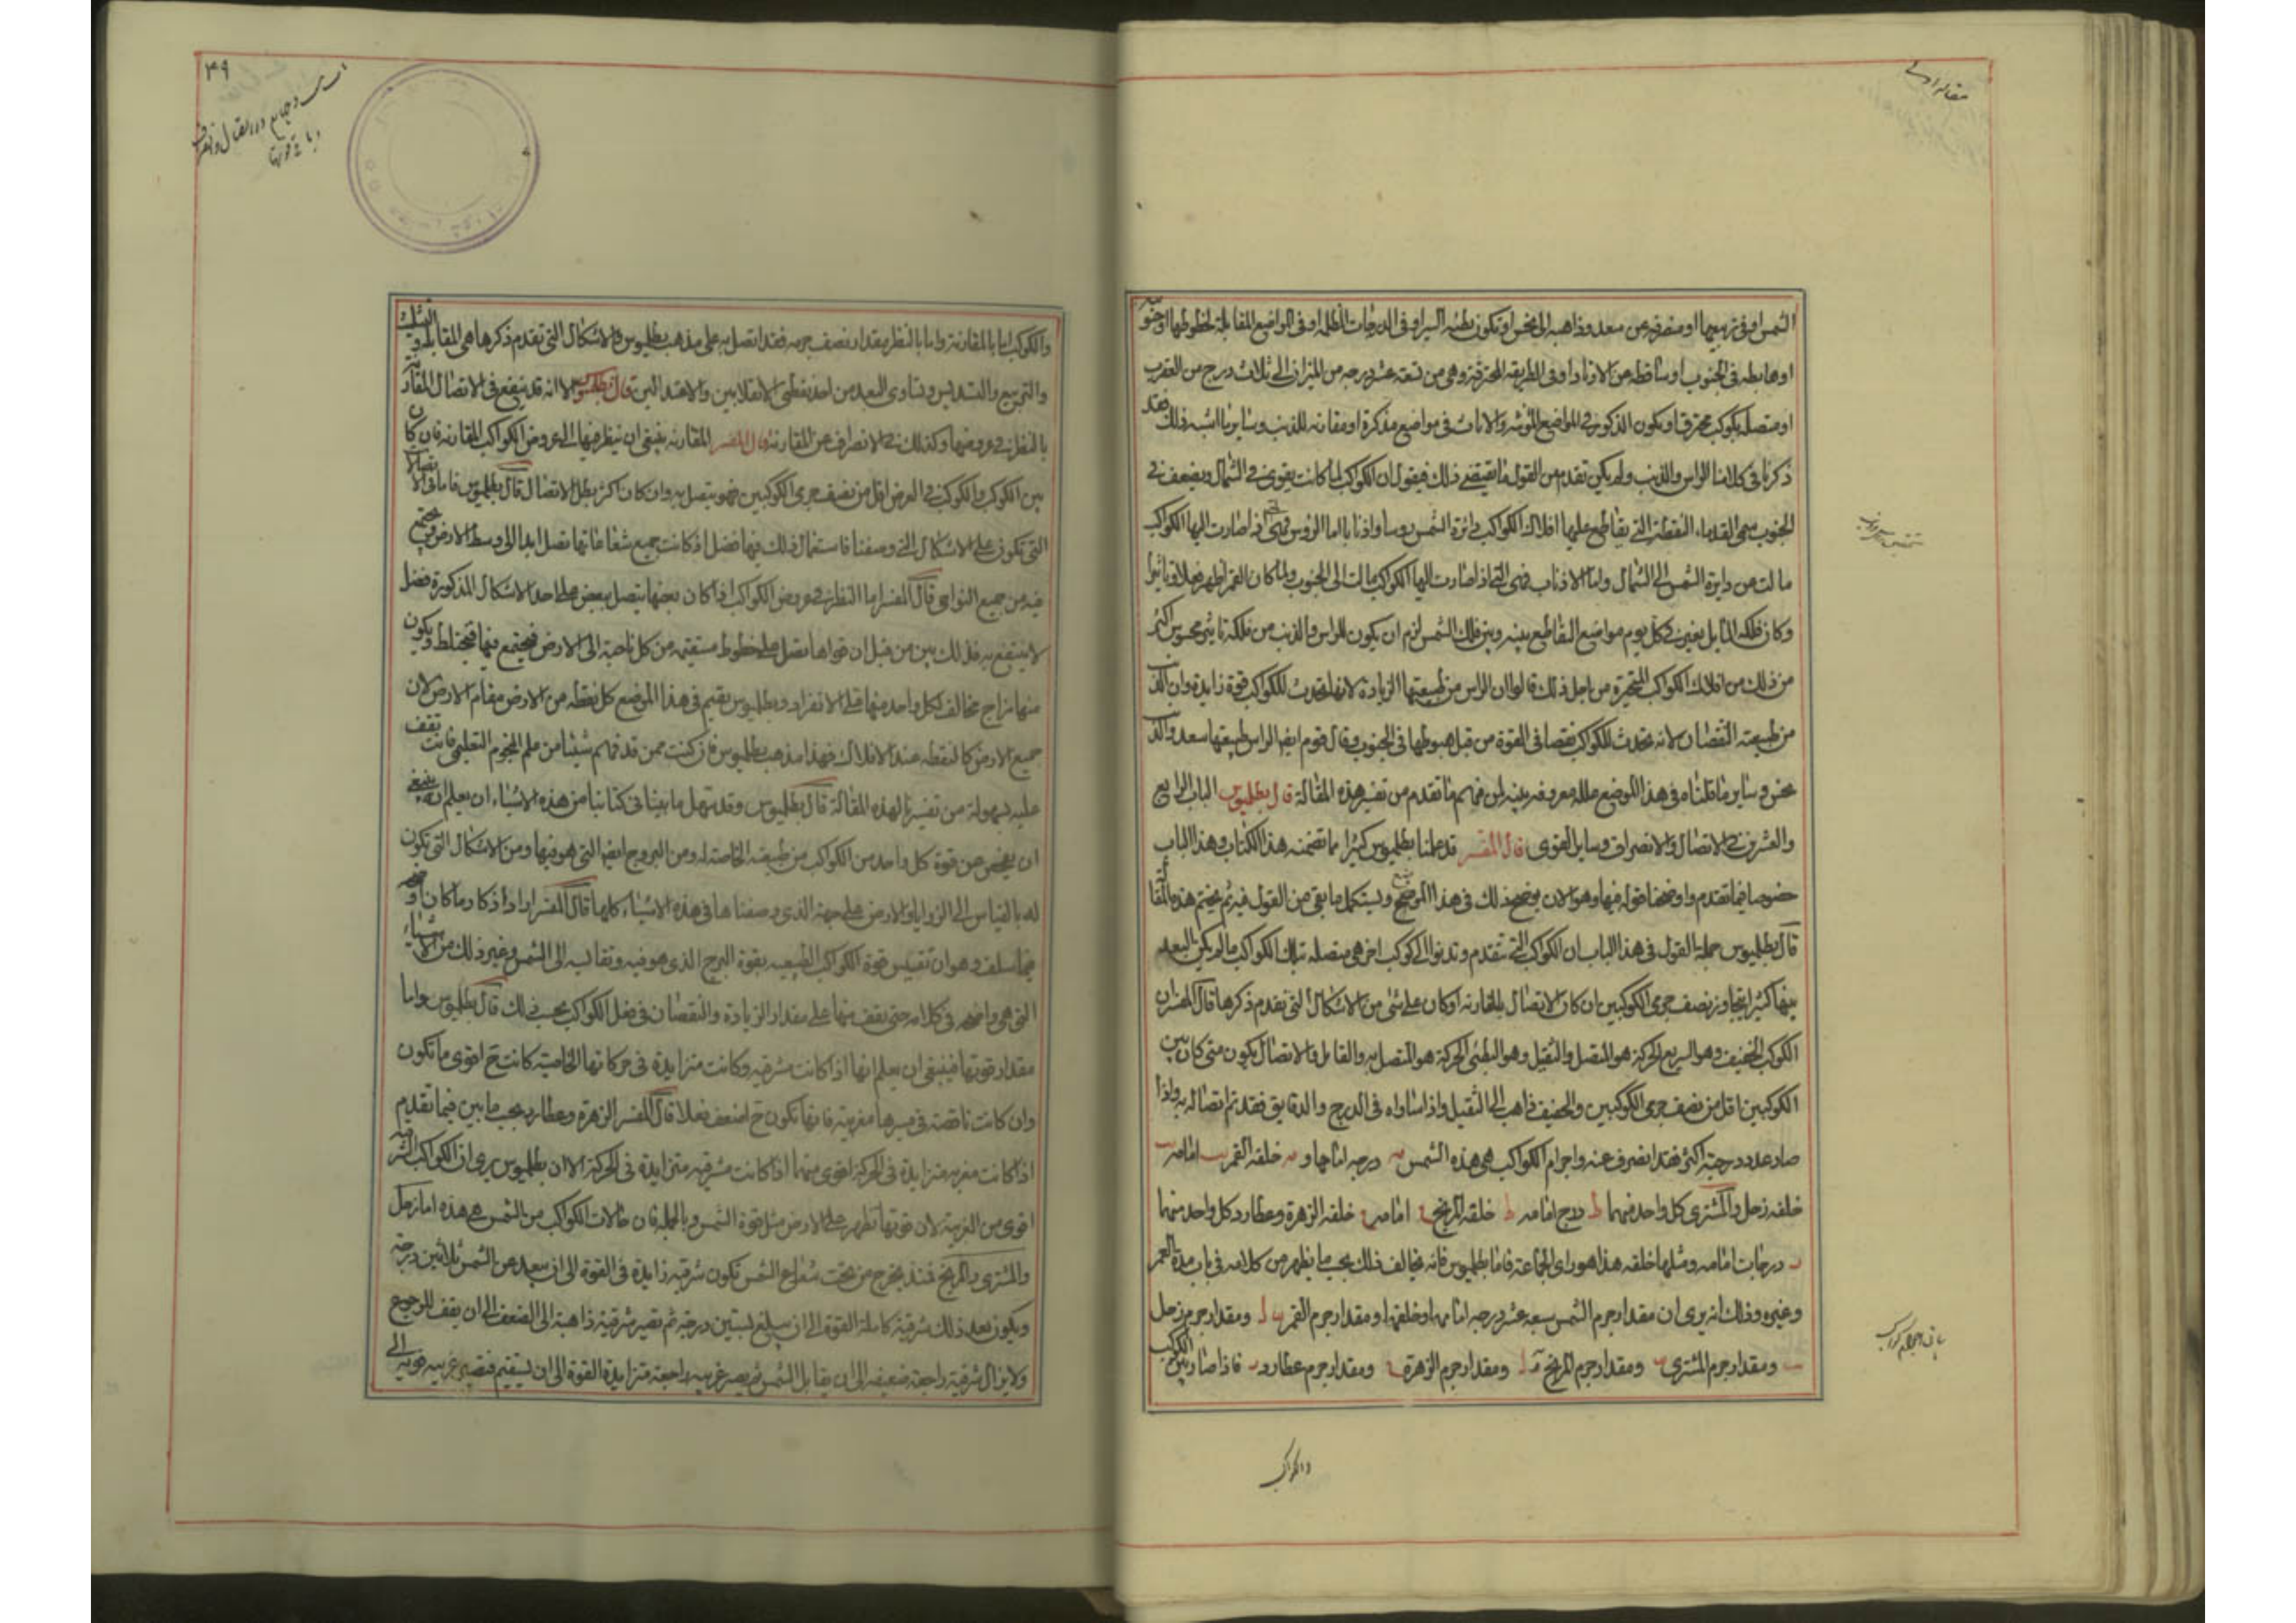 مقاله اولی
الشمس او في تربيعها او منصرفه عن سعد وذاهبه الى نحس او تكون بطيئه السير او في الدرجات المظلمه او في المواضع المقابلة لحظوظها او جنوبيه
او هابطه في الجنوب او ساقطه عن الاوتاد او في الطريقه المحترقة وهي من تسعه عشر درجه من الميزان الى ثلاث درج من العقرب
او متصله بكوكب محترق او يكون الذكور في المواضع المؤنثه والاناث في مواضع مذكرة او مقارنه للذنب وساير ما اشبه ذلك فقد
ذكرنا في كلامنا الراس والذنب ولم يكن تقدم من القول ما يقتضي ذلك فيقول ان الكواكب لما كانت يقوى في الشمال ويضعف في
الجنوب سمى القدماء النقطتين التي يقاطع عليها افلاك الكواكب دائرة الشمس روسا واذنابا اما الرؤس فهي التي اذ اصارت اليها الكواكب
مالت عن دايرة الشمس الى الشمال واما الاذناب فهي التي اذا صارت اليها الكواكب مالت الى الجنوب ولما كان القمر اظهر فعلا وتاثيرا
وكان فلكه المايل يغير في كل يوم مواضع التقاطع بينه وبين فلك الشمس لزم ان يكون للراس والذنب من فلكه تاثير محسوس اكثر
من ذلك من افلاك الكواكب المتحيرة من اجل ذلك قالوا ان الراس من طبيعتها الزيادة لانها تحدث للكواكب قوة زايدة وان الذنب
من طبيعته النقصان لانه يحدث للكواكب نقصا في القوة من قبل هبوطها في الجنوب وقال قوم ايضا الراس طبيعتها سعد والذنب
نحس وساير ما قلناه في هذا الموضع علله معروفه بينه لمن فهم ما تقدم من تفسير هذه المقالة قال بطلميوس الباب الرابع
والعشرين في الاتصال والانصراف وساير القوى قال المفسر قد علمنا بطلميوس كثيرا مما تضمنه هذا الكتاب وهذا الباب
خصوصا فيما تقدم واوضحنا قوله فيها وهو الان يوضح ذلك في هذا الموضع ويستكمل ما بقى من القول فيه ثم يختم هذه المقالة
قال بطلميوس جملة القول في هذا الباب ان الكواكب التي تتقدم وتدنوا الى كوكب اخر هي متصله بتلك الكواكب ما لم يكن البعد
بينها كثيرا يتجاوز نصف جرمي الكوكبين ان كان الاتصال بالمقارنه او كان على شي من الاشكال التي تقدم ذكرها قال المفسر ان
الكوكب الخفيف وهو السريع الحركة هو المتصل والثقيل وهو البطئي الحركة هو المتصل به والقابل والاتصال يكون متى كان بين
الكوكبين اقل من نصف جرمي الكوكبين والخفيف ذاهب الى الثقيل واذا ساواه في الدرج والدقايق فقد تم اتصاله به واذا
صار عدد درجته اكثر فقد انصرف عنه واجرام الكواكب هي هذه الشمس درجه امامها و خلفه القمر امامه
خلفه زحل والمشتري كل واحد منهما ط درج امامه ط خلفه المريخ امامه خلفه الزهرة وعطارد كل واحد منهما
درجات امامه ومثلها خلفه هذا هو راى الجماعة فاما بطلميوس فانه يخالف ذلك بحسب ما يظهر من كلامه في باب مدة العمر
وغيره وذلك انه يرى ان مقدار جرم الشمس سبعه عشر درجه امامها او خلفها ومقدار جرم القمر ومقدار جرم زحل
ومقدار جرم المشترى ومقدار جرم المريخ ومقدار جرم الزهرة ومقدار جرم عطارد فاذا صار بين الكوكب
والكواكب
٣٩
والكوكب اما بالمقارنة واما بالنظر بمقدار نصف جرمه فقد اتصل به على مذهب بطلميوس والاشكال التي تقدم ذكرها هي المقابلة والتثليث
والتربيع والتسديس وتساوى البعد من احد نقطتي الانقلابين والاعتدالين قال بطلميوس الا انه قد ينتفع في الاتصال المقارنة
بالنظر في عروضها وكذلك في الانصراف عن المقارنة قال المفسر المقارنه ينبغي ان ينظر فيها الى عروض الكواكب المقارنه فان كان
بين الكوكب والكوكب في العرض اقل من نصف جرمي الكوكبين فهو يتصل به وان كان اكثر بطل الاتصال قال بطلميوس فاما في الاتصالات
التي تكون على الاشكال التي وصفنا فاستعمال ذلك فيها فضل اذ كانت جميع شعاعاتها تصل ابدا الى وسط الارض وتجتمع
فيه من جميع النواحي قال المفسر اما النظر في عروض الكواكب اذا كان بعضها يتصل ببعض على احد الاشكال المذكورة فضل
لا ينتفع به فذلك بين من قبل ان قواها تصل على خطوط مستقيمه من كل ناحية الى الارض فتجتمع فيها فتختلط ويكون
منها مزاج مخالف لكل واحد منها على الانفراد وبطلميوس يقيم في هذا الموضع كل نقطه من الارض مقام الارض لان
جميع الارض كالنقطه عند الافلاك فهذا مذهب بطلميوس فان كنت ممن قد فهم شيئا من علم النجوم التعليمي فانت تقف
عليه بسهولة من تفسيرنا لهذه المقالة قال بطلميوس وقد تسهل ما بينا في كتابنا من هذه الاشياء ان يعلم انه ينبغي
ان يفحص عن قوة كل واحد من الكواكب من طبيعته الخاصته له ومن البروج ايضا التي هو فيها ومن الاشكال التي تكون
له بالقياس الى الزوايا والارض على جهة الذي وصفناها في هذه الاشياء كلها قال المفسر اراد اذكار ما كان اوضحه
فيما سلف وهو ان تقيس قوة الكواكب الطبيعيه بقوة البرج الذي هو فيه ونقاليه الى الشمس وغير ذلك من الاشياء
التي هي واضحه في كلامه حتى يقف منها على مقدار الزيادة والنقصان في فعل الكواكب بحسب ذلك قال بطلميوس واما
مقدار قوتها فينبغي ان يعلم انها اذا كانت مشرقيه وكانت متزايدة في حركاتها الخاصية كانت ح اقوى ما تكون
وان كانت ناقصة في سيرها مغربية فانها تكون ح اضعف فعلا قال المفسر الزهرة وعطارد بحسب ما بين فيما تقدم
اذا كانت مغربيه متزايدة في الحركة اقوى منها اذا كانت مشرقيه متزايدة في الحركة الا ان بطلميوس يرى ان الكواكب الشرقيه
اقوى من الغربية لان قوتها تظهر على الارض مثل قوة الشمس وبالجمله فان حالات الكواكب من الشمس هي هذه اما زحل
والمشترى والمريخ فمنذ يخرج من تحت شعاع الشمس تكون شرقيه زايدة في القوة الى ان يبعد عن الشمس ثلاثين درجة
ويكون بعد ذلك شرقية كاملة القوة الى ان يبلغ لستين درجة ثم تصير شرقية ذاهبة الى الضعف الى ان يقف للرجوع
ولا يزال شرقية راجعة ضعيفه الى ان يقابل الشمس ثم يصير غربيه راجعة متزايدة القوة الى ان يستقيم فتصير غربيه قويه الى